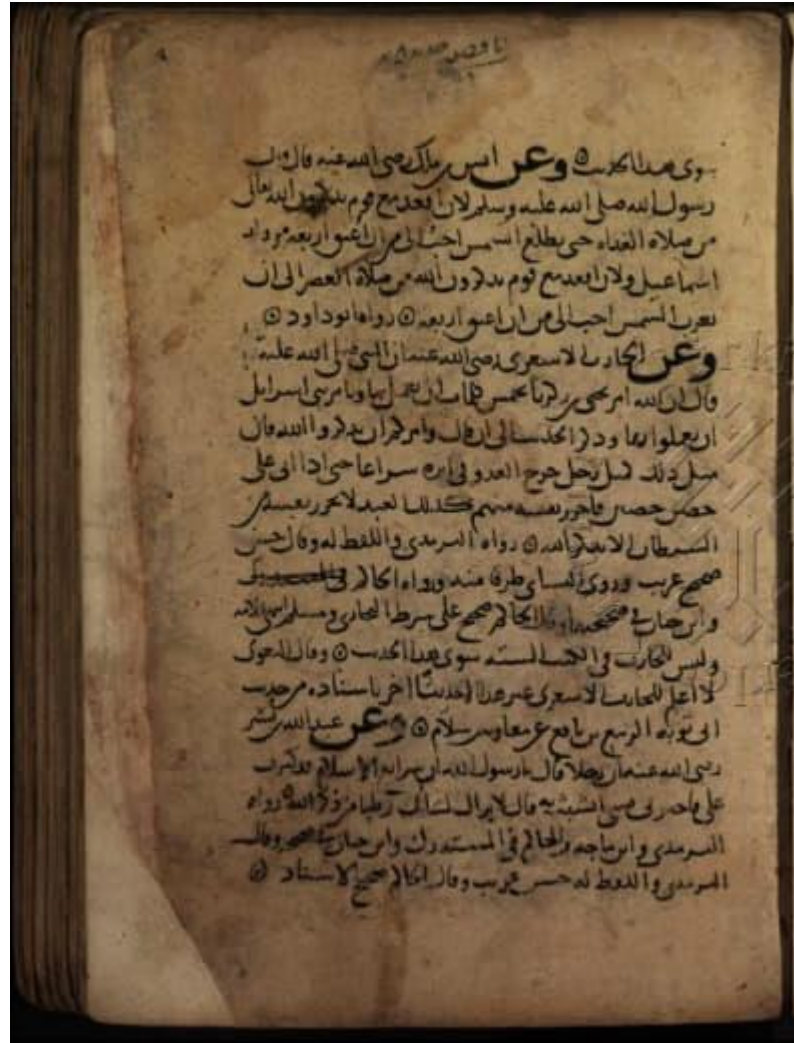 سوى هذا الحديث وعن انس بن مالك رضي الله عنه قال قال
رسول الله صلى الله عليه وسلم لان اقعد مع قوم يذكرون الله تعالى
من صلاة الغداة حتى تطلع الشمس احب الي من ان اعتق اربعة من ولد
اسماعيل ولان اقعد مع قوم يذكرون الله من صلاة العصر الى ان
تغرب الشمس احب الي من ان اعتق اربعة رواه ابو داود
وعن الحارث الاشعري رضي الله عنه ان النبي صلى الله عليه
قال ان الله امر يحيى بن زكريا بخمس كلمات ان يعمل بها ويامر بني اسرايل
ان يعملوا بها وذكر الحديث الى ان قال وامركم ان تذكروا الله فان
مثل ذلك مثل رجل خرج العدو في اثره سراعا حتى اذا اتى على
حصن حصين فاحرز نفسه منهم كذلك العبد لا يحرز نفسه من
الشيطان الا بذكر الله رواه الترمذي واللفظ له وقال حسن
صحيح غريب وروى النساي طرفا منه ورواه الحاكم في
وابن حبان في صحيحه وقال الحاكم صحيح على شرط البخاري ومسلم
وليس للحارث في الكتب الستة سوى هذا الحديث وقال البغوي
لا اعلم للحارث الاشعري غير هذا الحديث اخر باسناده من حديث
ابي توبة الربيع بن نافع عن معاوية بن سلام وعن عبد الله بن بسر
رضي الله عنه ان رجلا قال يارسول الله ان شرايع الاسلام قد كثرت
علي فاخبرني بشي اتشبث به قال لا يزال لسانك رطبا من ذكر الله رواه
الترمذي وابن ماجه والحاكم في المستدرك وابن حبان في صحيحه وقال
الترمذي واللفظ له حسن غريب وقال الحاكم صحيح الاسناد